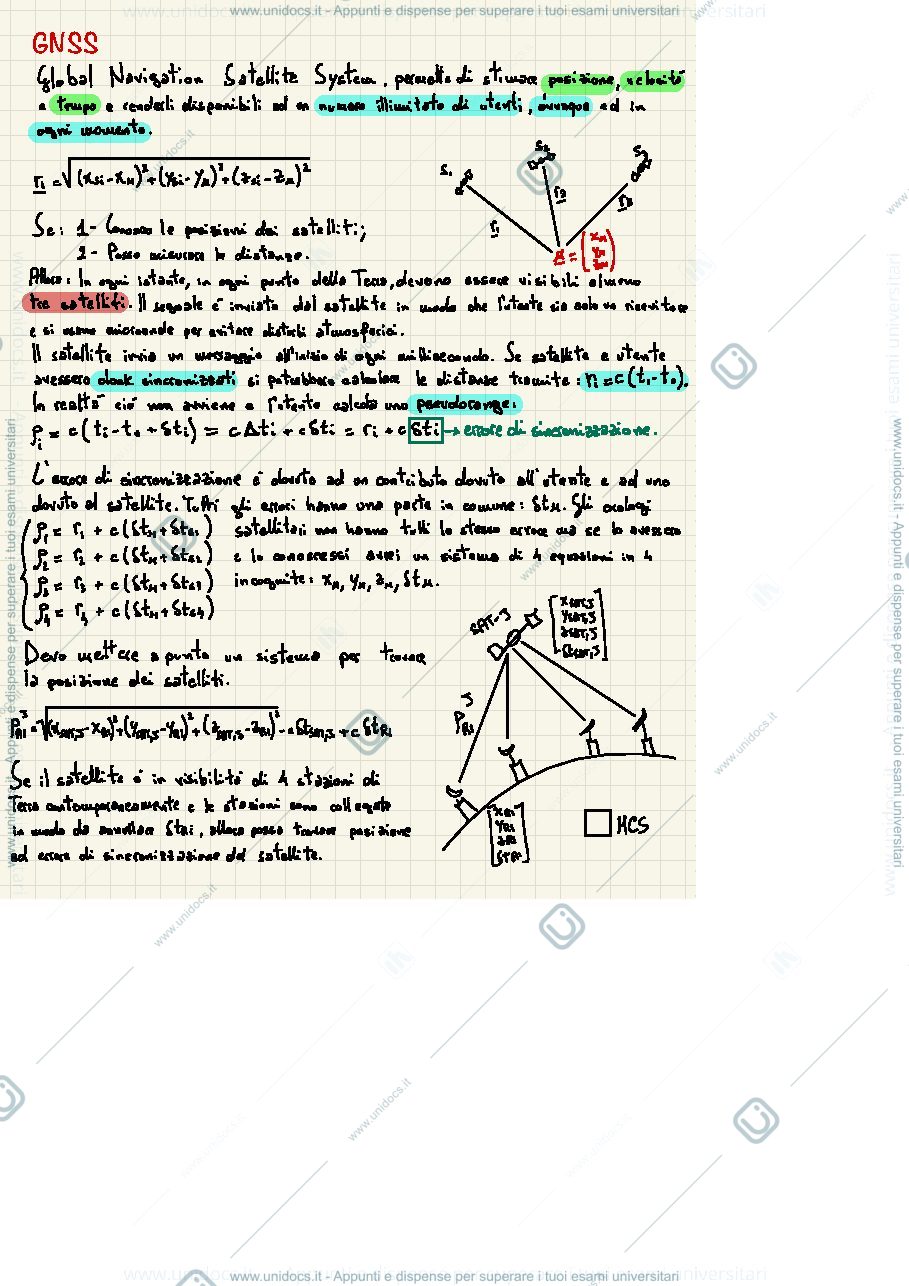 www.unidocs.it - Appunti e dispense per superare i tuoi esami universitari
GNSS
Global Navigation Satellite System, permette di stimare posizione, velocità
e tempo e renderli disponibili ad un numero illimitato di utenti, ovunque ed in
ogni momento.
r₁ = √(x_si - x_M)² + (y_si - y_M)² + (z_si - z_M)²
S₁ S₂ S₃
r₁ r₂ r₃
= (x_M y_M z_M)
Se: 1- Conosco le posizioni dei satelliti;
2- Posso misurare le distanze.
Allora: In ogni istante, in ogni punto della Terra, devono essere visibili almeno
tre satelliti. Il segnale è inviato dal satellite in modo che l'utente sia solo un ricevitore
e si usano microonde per evitare disturbi atmosferici.
Il satellite invia un messaggio all'inizio di ogni millisecondo. Se satellite e utente
avessero clock sincronizzati si potrebbero calcolare le distanze tramite: r₁ = c(t₁-t₀).
In realtà ciò non avviene e l'utente calcola uno pseudorange:
ρi = c(ti - t₀ + δti) = cΔti + cδti = ri + cδti → errore di sincronizzazione.
L'errore di sincronizzazione è dovuto ad un contributo dovuto all'utente e ad uno
dovuto al satellite. Tutti gli errori hanno una parte in comune: δt_M. Gli orologi
satellitari non hanno tutti lo stesso errore ma se lo avessero
e lo conoscessi avrei un sistema di 4 equazioni in 4
incognite: x_M, y_M, z_M, δt_M.
ρ₁ = r₁ + c(δt_M + δt_s1)
ρ₂ = r₂ + c(δt_M + δt_s2)
ρ₃ = r₃ + c(δt_M + δt_s3)
ρ₄ = r₄ + c(δt_M + δt_s4)
Devo mettere a punto un sistema per trovare
la posizione dei satelliti.
SAT-J
[x_SAT,J y_SAT,J z_SAT,J δt_SAT,J]
P_R1^J
P_R1^J = √(x_SAT,J - x_R1)² + (y_SAT,J - y_R1)² + (z_SAT,J - z_R1)² - cδt_SAT,J + cδt_R1
Se il satellite è in visibilità di 4 stazioni di
Terra contemporaneamente e le stazioni sono collegate
in modo da annullare δt_Ri, allora posso trovare posizione
ed errore di sincronizzazione del satellite.
[x_R1 y_R1 z_R1 δt_R1]
MCS
www.unidocs.it - Appunti e dispense per superare i tuoi esami universitari